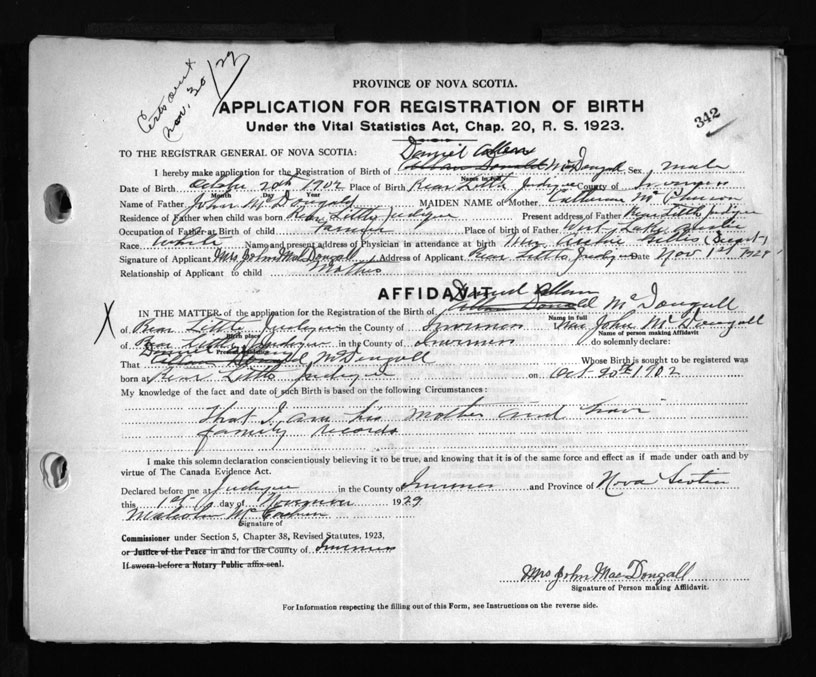 Certs sent
Nov. 30/29
PROVINCE OF NOVA SCOTIA.
APPLICATION FOR REGISTRATION OF BIRTH
342
Under the Vital Statistics Act, Chap. 20, R. S. 1923.
TO THE REGISTRAR GENERAL OF NOVA SCOTIA:
Daniel Allan
I hereby make application for the Registration of Birth of Allan Donald McDougall Sex, Male
Name in full
Date of Birth October 20th 1902 Place of Birth Rear Little Judique County of Inverness
Month Day Year
Name of Father John McDougald MAIDEN NAME of Mother Catherine Mc
Residence of Father when child was born Rear Little Judique Present address of Father Rear Little Judique
Occupation of Father at Birth of child Farmer Place of birth of Father West Lake Ainslie
Race White Name and present address of Physician in attendance at birth Mrs Gillis
Signature of Applicant Mrs John MacDougall Address of Applicant Rear Little Judique Date Nov 1st 1929
Relationship of Applicant to child Mother
AFFIDAVIT
Daniel Allan
IN THE MATTER of the application for the Registration of Birth of Allan Donald McDougall
Name in full
of Rear Little Judique in the County of Inverness Mrs John McDougall
Birth place Name of person making Affidavit
of Rear Little Judique in the County of Inverness do solemnly declare:
Present
Daniel
That Allan Donald McDougall Whose Birth is sought to be registered was
born at Rear Little Judique on Oct 20th 1902
My knowledge of the fact and date of such Birth is based on the following Circumstances:
That I am his mother and have
family records
I make this solemn declaration conscientiously believing it to be true, and knowing that it is of the same force and effect as if made under oath and by
virtue of The Canada Evidence Act.
Declared before me at Judique in the County of Inverness and Province of Nova Scotia
this 1st day of November 1929
Malcolm Mc
Signature of
Commissioner under Section 5, Chapter 38, Revised Statutes, 1923,
or Justice of the Peace in and for the County of Inverness
If sworn before a Notary Public affix seal.
Mrs John MacDougall
Signature of Person making Affidavit.
For Information respecting the filling out of this Form, see Instructions on the reverse side.